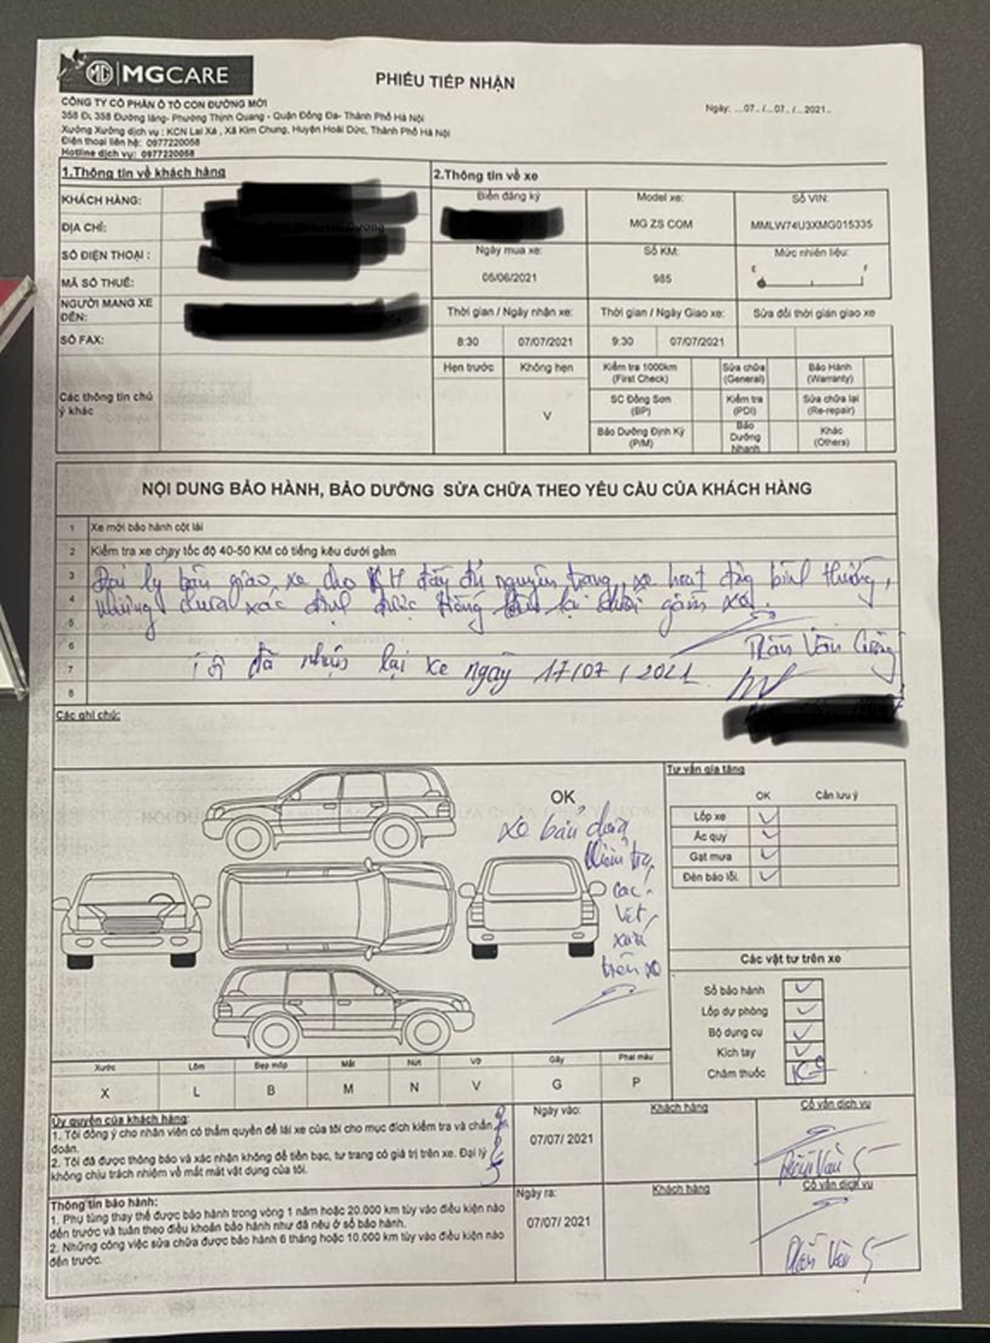 MG | MGCARE
PHIẾU TIẾP NHẬN
CÔNG TY CỔ PHẦN Ô TÔ CON ĐƯỜNG MỚI
358 Đường láng- Phường Thịnh Quang - Quận Đống Đa- Thành Phố Hà Nội
Xưởng Xưởng dịch vụ : KCN Lai Xá , Xã Kim Chung, Huyện Hoài Đức, Thành Phố Hà Nội
Điện thoại liên hệ: 0977220058
Hotline dịch vụ: 0977220058
Ngày: ....07.../....07.../....2021..
1.Thông tin về khách hàng
KHÁCH HÀNG:
ĐỊA CHỈ:
SỐ ĐIỆN THOẠI :
MÃ SỐ THUẾ:
NGƯỜI MANG XE
ĐẾN:
SỐ FAX:
Các thông tin chú
ý khác
2.Thông tin về xe
Biển đăng ký
Model xe: Số VIN:
MG ZS COM MMLW74U3XMG015335
Ngày mua xe: Số KM: Mức nhiên liệu:
05/06/2021 985 E F
Thời gian / Ngày nhận xe: Thời gian / Ngày Giao xe: Sửa đổi thời gian giao xe
8:30 07/07/2021 9:30 07/07/2021
Hẹn trước Không hẹn
V
Kiểm tra 1000km
(First Check)
Sửa chữa
(General)
Bảo Hành
(Warranty)
SC Đồng Sơn
(BP)
Kiểm tra
(PDI)
Sửa chữa lại
(Re-repair)
Bảo Dưỡng Định Kỳ
(P/M)
Bảo
Dưỡng
Nhanh
Khác
(Others)
NỘI DUNG BẢO HÀNH, BẢO DƯỠNG SỬA CHỮA THEO YÊU CẦU CỦA KHÁCH HÀNG
1 Xe mới bảo hành cột lái
2 Kiểm tra xe chạy tốc độ 40-50 KM có tiếng kêu dưới gầm
3 Đại lý bàn giao xe cho KH đầy đủ nguyên trạng, xe hoạt động bình thường,
4 nhưng chưa xác định được tại dưới gầm xe.
5
6 Trần Văn Cường
7 Tôi đã nhận lại xe ngày 17/07/2021
8
Các ghi chú:
OK
Xe bẩn chưa
kiểm tra
các
vết
xước
trên xe
Tư vấn gia tăng
OK Cần lưu ý
Lốp xe
Ắc quy
Gạt mưa
Đèn báo lỗi.
Các vật tư trên xe
Sổ bảo hành
Lốp dự phòng
Bộ dụng cụ
Kích tay
Châm thuốc
Xước Lõm Bẹp móp Mất Nứt Vỡ Gãy Phai màu
X L B M N V G P
Ủy quyền của khách hàng:
1. Tôi đồng ý cho nhân viên có thẩm quyền để lái xe của tôi cho mục đích kiểm tra và chẩn
đoán.
2. Tôi đã được thông báo và xác nhận không để tiền bạc, tư trang có giá trị trên xe. Đại lý
không chịu trách nhiệm về mất mát vật dụng của tôi.
Ngày vào: Khách hàng Cố vấn dịch vụ
07/07/ 2021
Thông tin bảo hành:
1. Phụ tùng thay thế được bảo hành trong vòng 1 năm hoặc 20.000 km tùy vào điều kiện nào
đến trước và tuân theo điều khoản bảo hành như đã nêu ở sổ bảo hành.
2. Những công việc sửa chữa được bảo hành 6 tháng hoặc 10.000 km tùy vào điều kiện nào
đến trước.
Ngày ra: Khách hàng Cố vấn dịch vụ
07/07/ 2021